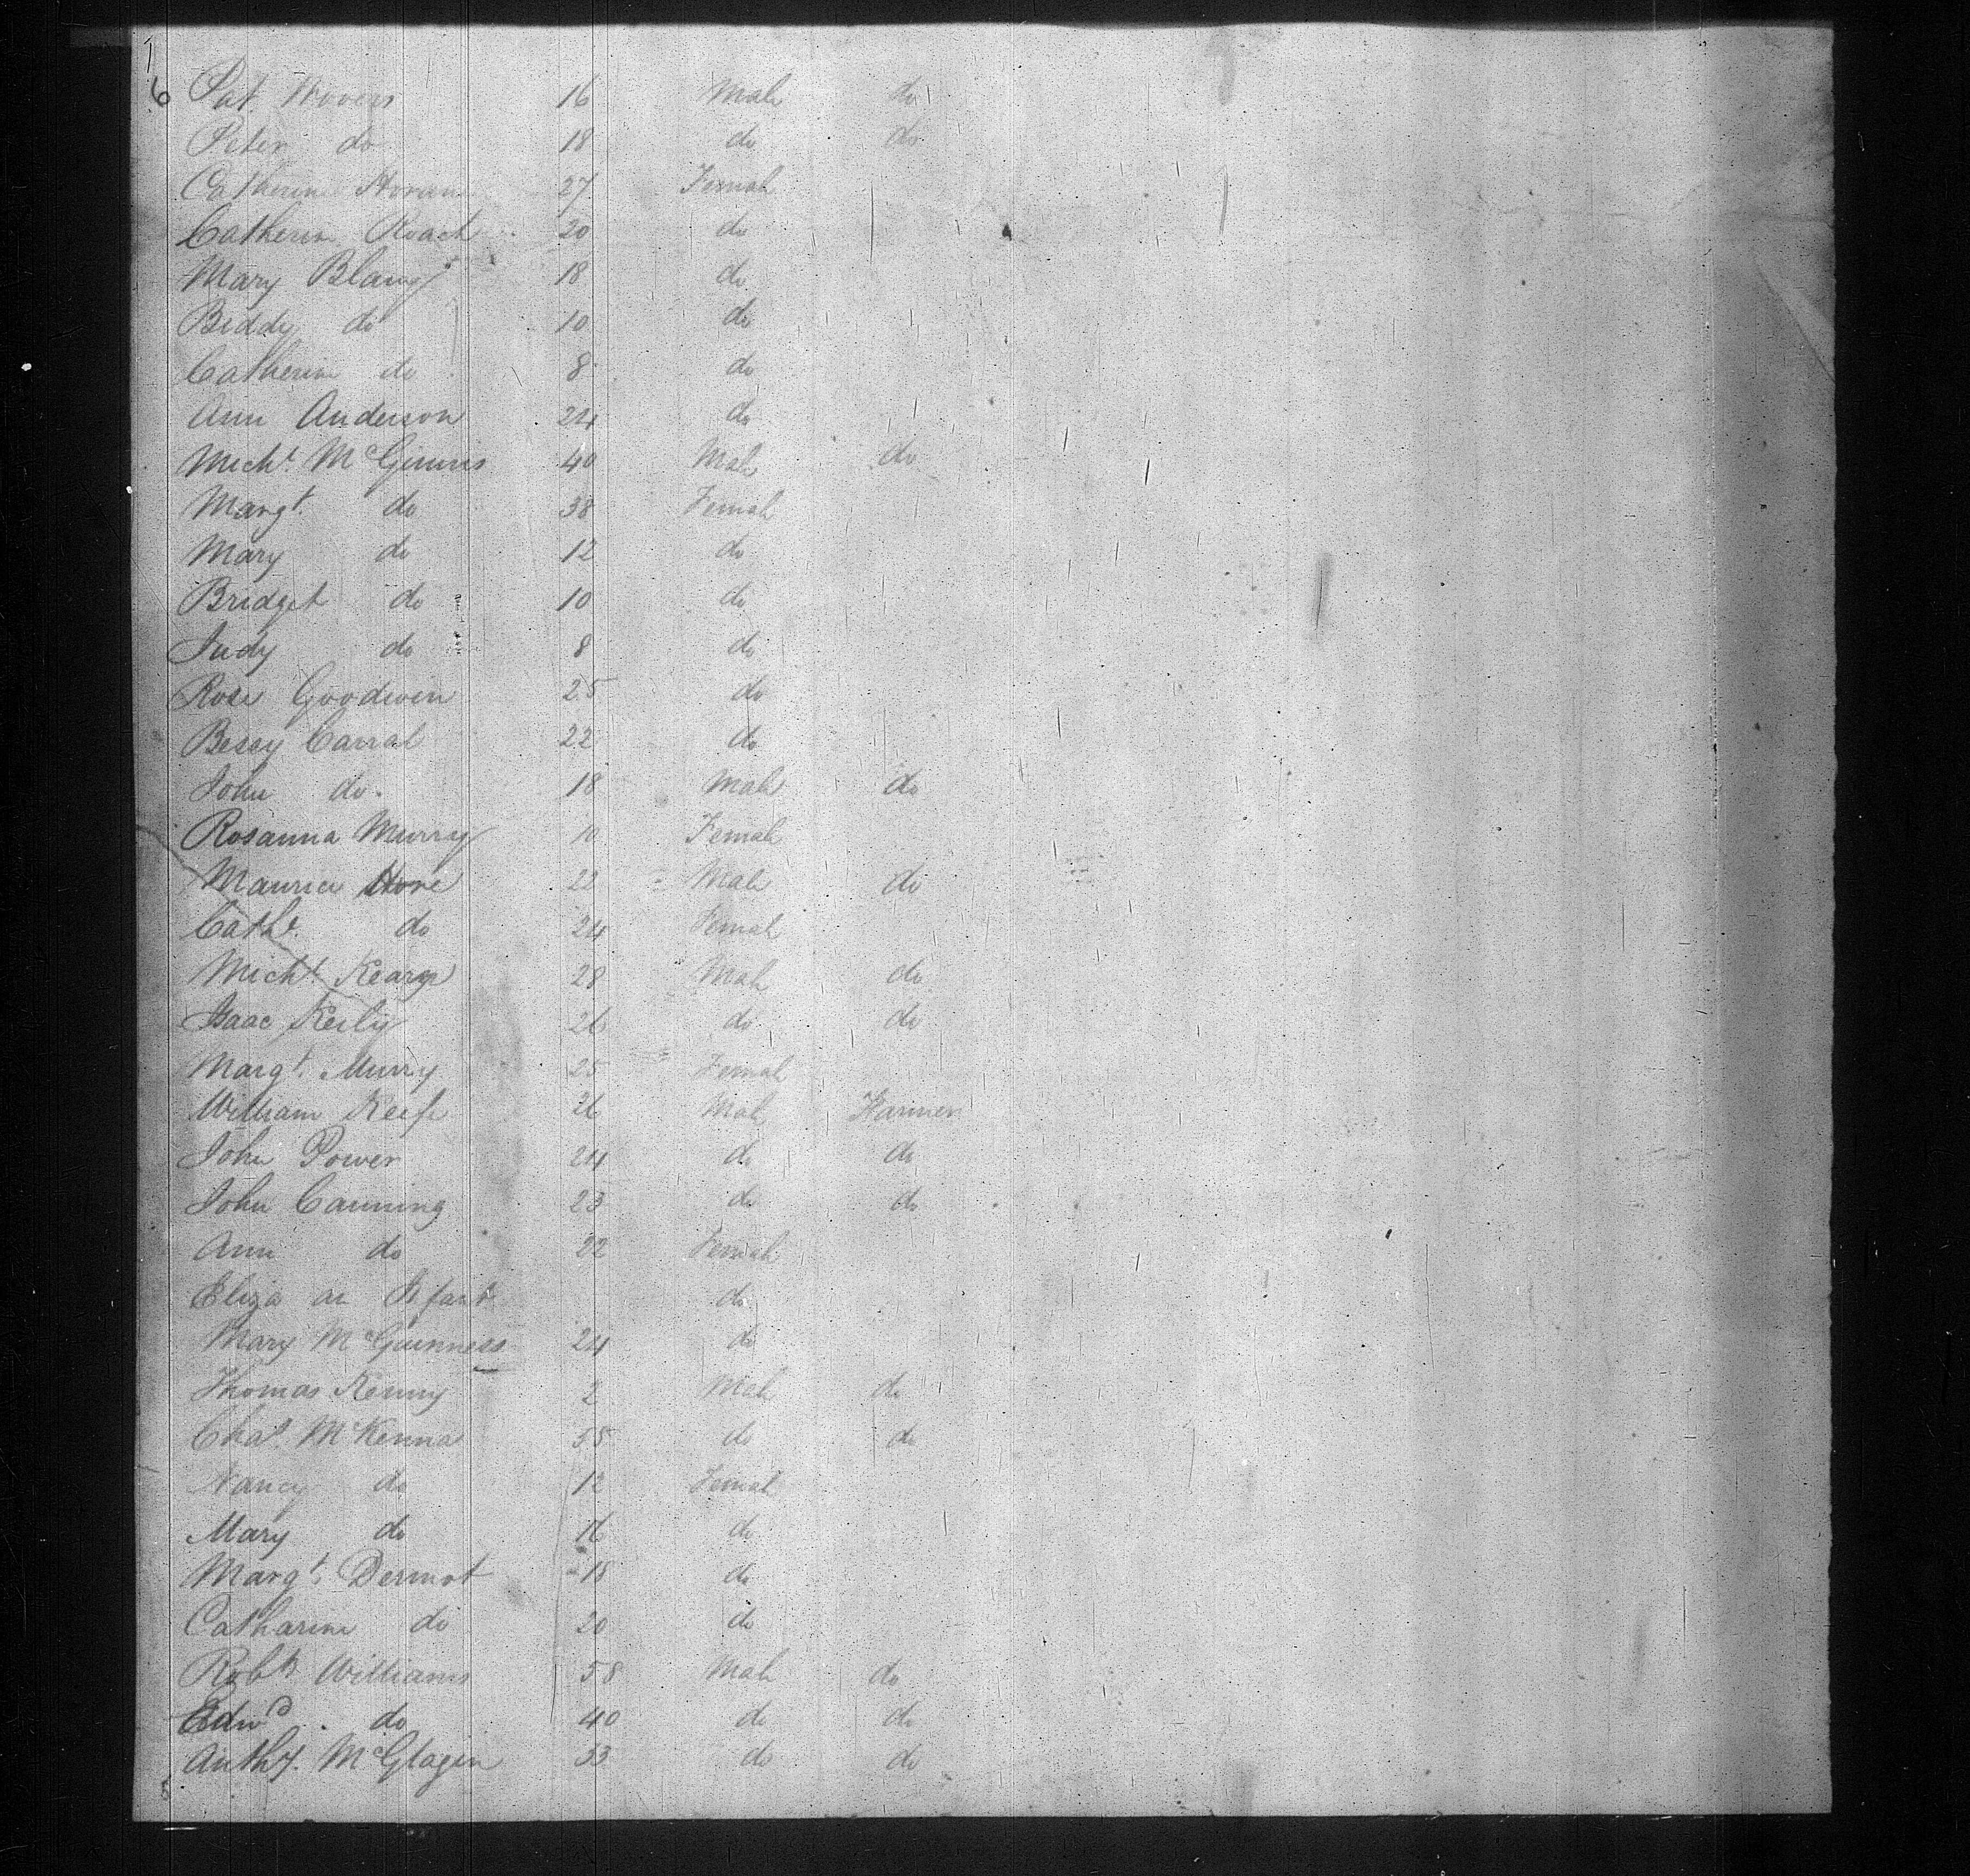 6 Pat 16 Male do
Peter do 18 do do
Catherine 27 Female
Catherin Roach 20 do
Mary Blany 18 do
Biddy do 10 do
Catherin do 8 do
Ann Anderson 24 do
Michl. McGinnis 40 Male do
Margt. do 38 Female
Mary do 12 do
Bridget do 10 do
Judy do 8 do
Rose Goodwin 25 do
Bessy Carral 22 do
John do. 18 Male do
Rosanna Murry 10 Female
Maurice Hore 22 Male do
Cathe. do 24 Female
Michl. Keary 28 Male do
Isaac Keily 26 do do
Margt. Murry 25 Female
William Keefe 26 Male Farmer
John Power 24 do do
John Canning 23 do do
Ann do 22 Female
Eliza an Infant do
Mary McGuinness 24 do
Thomas Kenny 2 Male do
Chas. McKenna 55 do do
Nancy do 12 Female
Mary do 16 do
Margt. Dermot 18 do
Catharine do 20 do
Robt. Williams 58 Male do
Edwd. do 40 do do
Anthy. McGlagin 33 do do